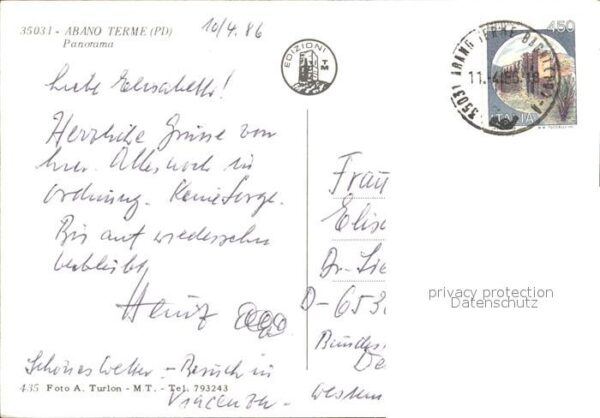 35031 - ABANO TERME (PD)
Panorama
10/4. 86
EDIZIONI
TM
450
35031 ABANO TERME
ITALIA
Liebe Elisabeth!
Herzliche Grüsse von
hier. Alles noch in
Ordnung. Keine Sorge.
Bis auf wiedersehn
verbleibt
Heinz
Schönes Wetter - Besuch in
Viacenza -
435 Foto A. Turlon - M T. - Tel. 793243
Frau
Elise
Dr-Sie
D-653
Bundes
De
Western
privacy protection
Datenschutz